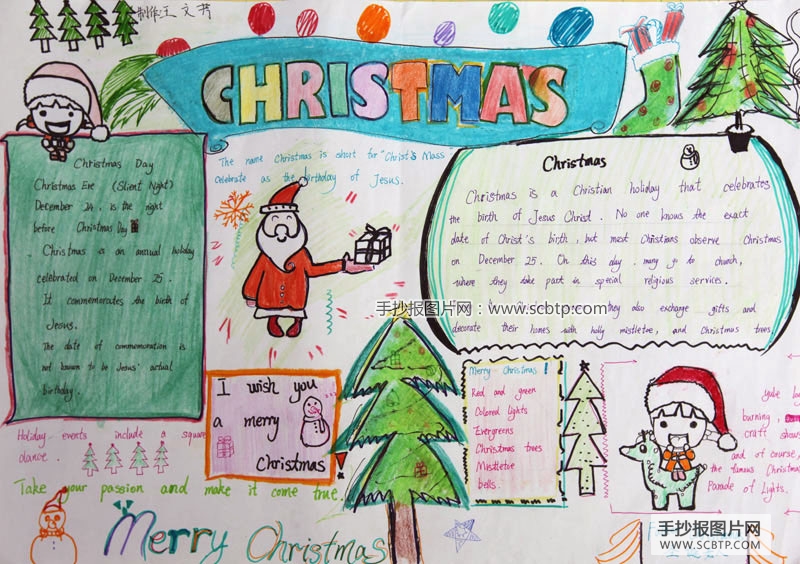 制作:王文芳
CHRISTMAS
Christmas Day
Christmas Eve (Slient Night)
December 24. is the night
before Christmas Day
Christmas is an annual holiday
celebrated on December 25.
It commemorates the birth of
Jesus.
The date of commemoration is
not known to be Jesus' actual
birthday.
The name Christmas is short for "Christ's Mass
Celebrate as the birthday of Jesus.
Christmas
Christmas is a Christian holiday that celebrates
the birth of Jesus Christ. No one knows the exact
date of Christ's birth, but most Christians observe Christmas
on December 25. On this day. many go to church,
where they take part in special religious services.
they also exchange gifts and
decorate their homes with holly mistletoe, and Christmas trees.
手抄报图片网:www.scbtp.com
I wish you
a merry
Christmas
Merry Christmas!
Red and green
Colored lights
Evergreens
Christmas trees
Mistletoe
bells.
yule
burning,
craft show
and of course,
the famous Christmas
Parade of Lights.
Holiday events include a square
dance.
Take your passion and make it come true.
Merry Christmas
手抄报图片网
WWW.SCBTP.COM